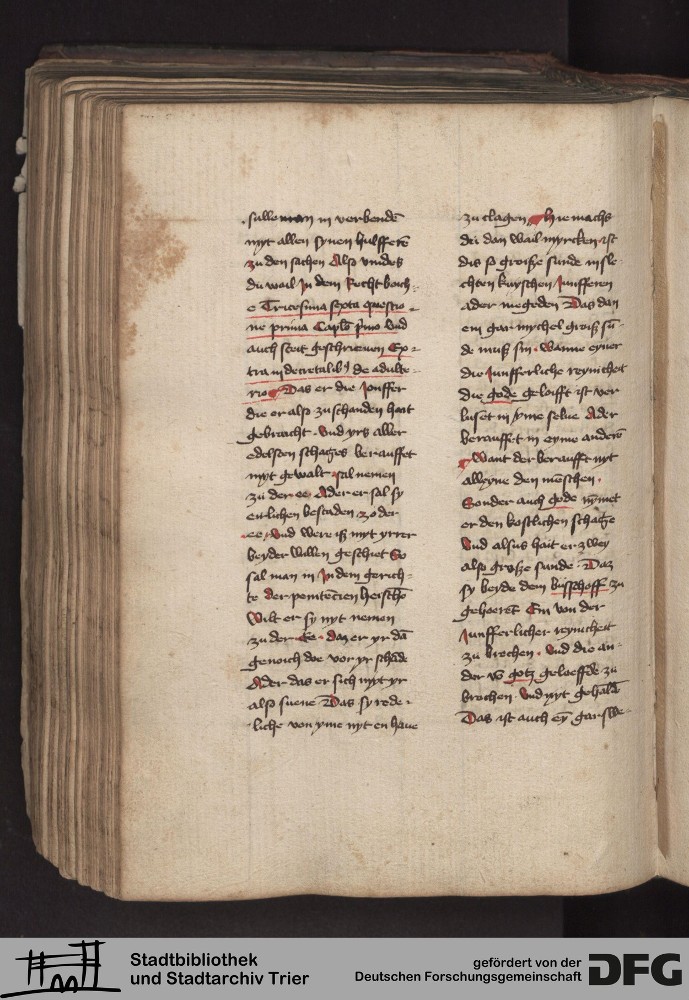 sulle man in verbende͞
myt allen synen hulffere͞
zu den sachen Also vindes
du wail In dem Recht boich
e Tricesima sexta questio
ne prima Caplo p͞mo Vnd
auch steit geschrieuen Ex
tra in decretalib9 de adulte
rio Das er die Jonffer
die er also zu schanden hait
gebraicht. Vnd yrs aller
edelsten schatzes berauffet
myt gewalt. sal nemen
zu der ee. Ader er sal sy
eirlichen bestaden. zo der
ee. Vnd were iß myt yrrer
beyder willen geschiet So
sal man in In dem gerich
te der penitecien heische͞
Wilt er sy nyt nemen
zu der Ee. daz er yr da͞
genoich doe vor yr schade
Ader das er sich myt yr
also suene Das sy rede
liche von yme nyt en haue
zu clagen Hie machs
du dan wail myrcken. ist
dis so groiße sunde in sle
chten kuyschen Junfferen
ader megeden Das dan
ein gar mychel groiß su͞
de muß sin. Wanne eyner
die Junfferliche reynicheit
die gode geloifft ist ver
luset in yme selue Ader
berauffet in eyme andere͞
Want der beraufft nyt
alleyne den me͞schen.
Sonder auch gode nymet
er den kostlichen schatze
Vnd alsus hait er zwey
also groyße sunde. Daz
sy beyde dem busschoff zu
gehoere͞t Ein von der
Junfferlicher reynicheit
zu brechen. Vnd die an
der vo͞ gotz geloeffde zu
brechen. Vnd nyt gehald͞
Das ist auch ey͞ gar swe
Stadtbibliothek
und Stadtarchiv Trier
gefördert von der
Deutschen Forschungsgemeinschaft
DFG